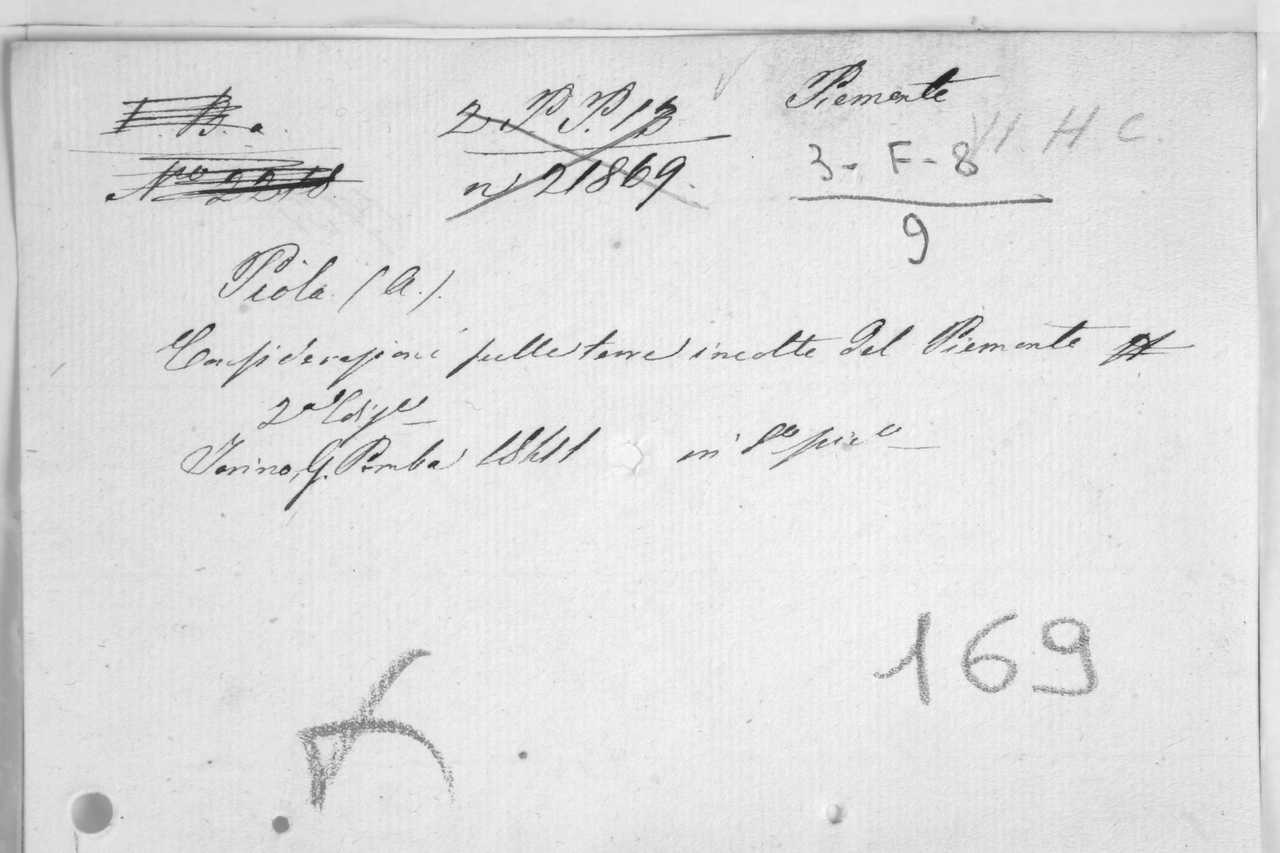 F. B. a.
No 2218
2 P. P. 13
n. 21869.
Piemonte
VI. H C.
3 - F - 8
9
Piola (A.).
Considerazioni sulle terre incolte del Piemonte
2a Ediz.e
Torino, G. Pomba 1841 in 8o pic.o
169